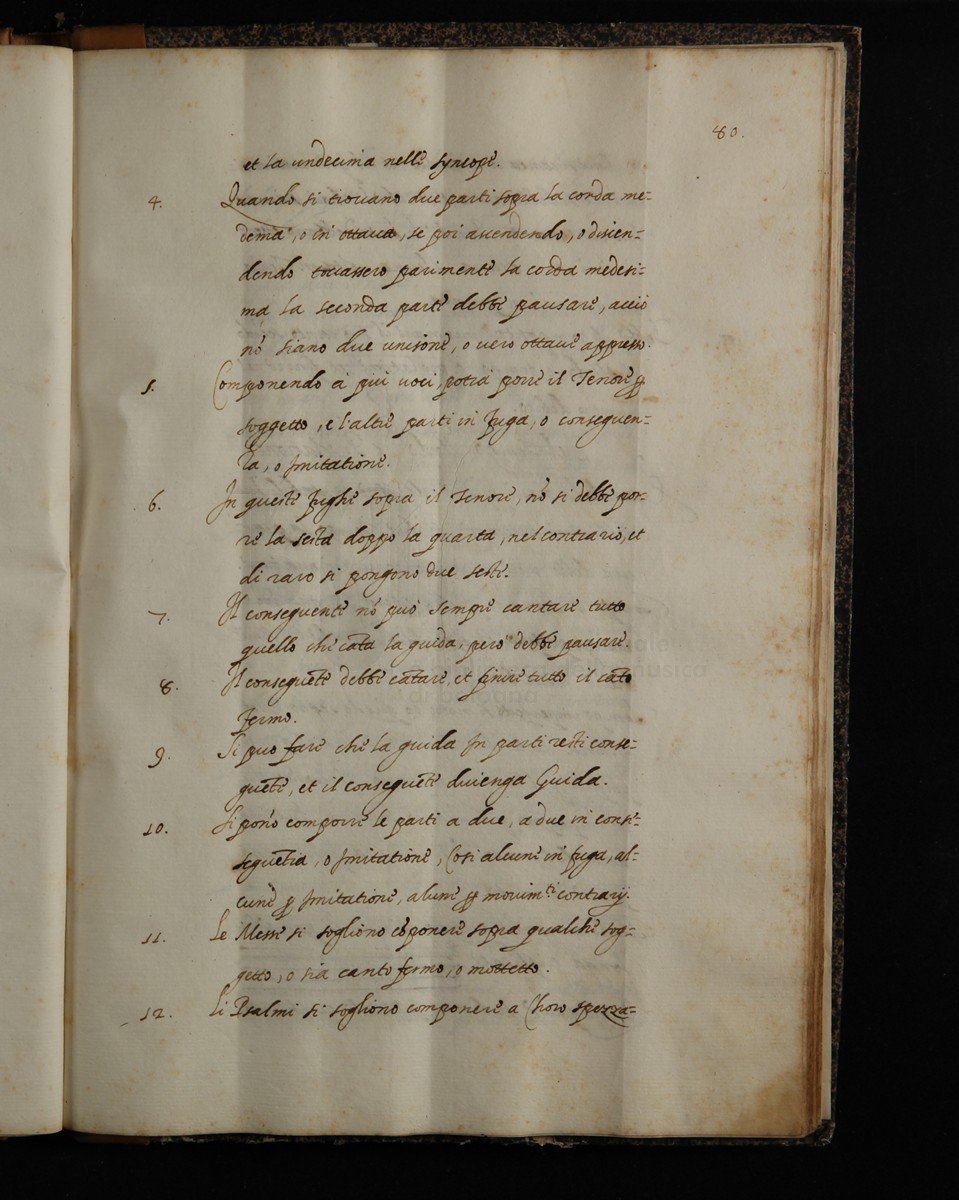 80.
et la undecima nelle syncope.
4. Quando si trouano due parti sopra la corda me-
dema, o in ottaua, se poi ascendendo, o discen-
dendo toccassero parimente la corda medesi-
ma la seconda parte debbe pausare, acciò
nõ siano due unisone, o vero ottaue appresso.
5. Componendo à più uoci, potrà porre il Tenore ꝑ
soggetto, e l'altre parti in fuga, o conseguen-
za, o Imitatione.
6. In queste fughe sopra il Tenore, nõ si debbe por-
re la sesta doppo la quarta, nel contrario, et
di raro si pongono due seste.
7. Il conseguente nõ può sempre cantare tutto
quello che cãta la guida, però debbe pausare.
8. Il conseguẽte debbe cãtare, et finire tutto il cãto
fermo.
9. Si puo fare che la guida In parti resti conse-
guẽte, et il conseguẽte diuenga Guida.
10. Si põno comporre le parti a due, a due in conse-
seguẽtia, o Imitatione, Cosi alcune in fuga, al-
cune ꝑ Imitatione, alune ꝑ mouim.ti contrarij.
11. Le Messe si sogliono cõponere sopra qualche sog-
getto, o sia canto fermo, o mottetto.
12. Li Psalmi si sogliono componere a Choro spezza-